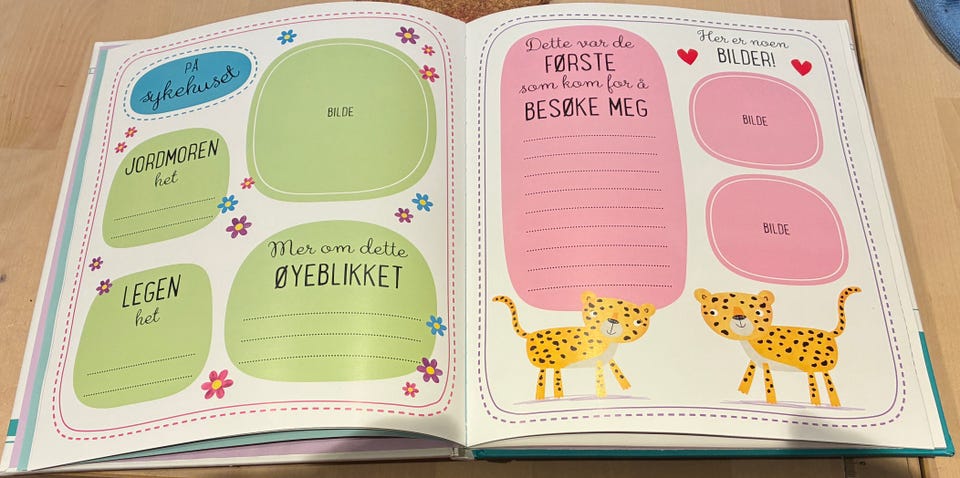 PÅ
sykehuset
BILDE
JORDMOREN
het
LEGEN
het
Mer om dette
ØYEBLIKKET
Dette var de
FØRSTE
som kom for å
BESØKE MEG
Her er noen
BILDER!
BILDE
BILDE